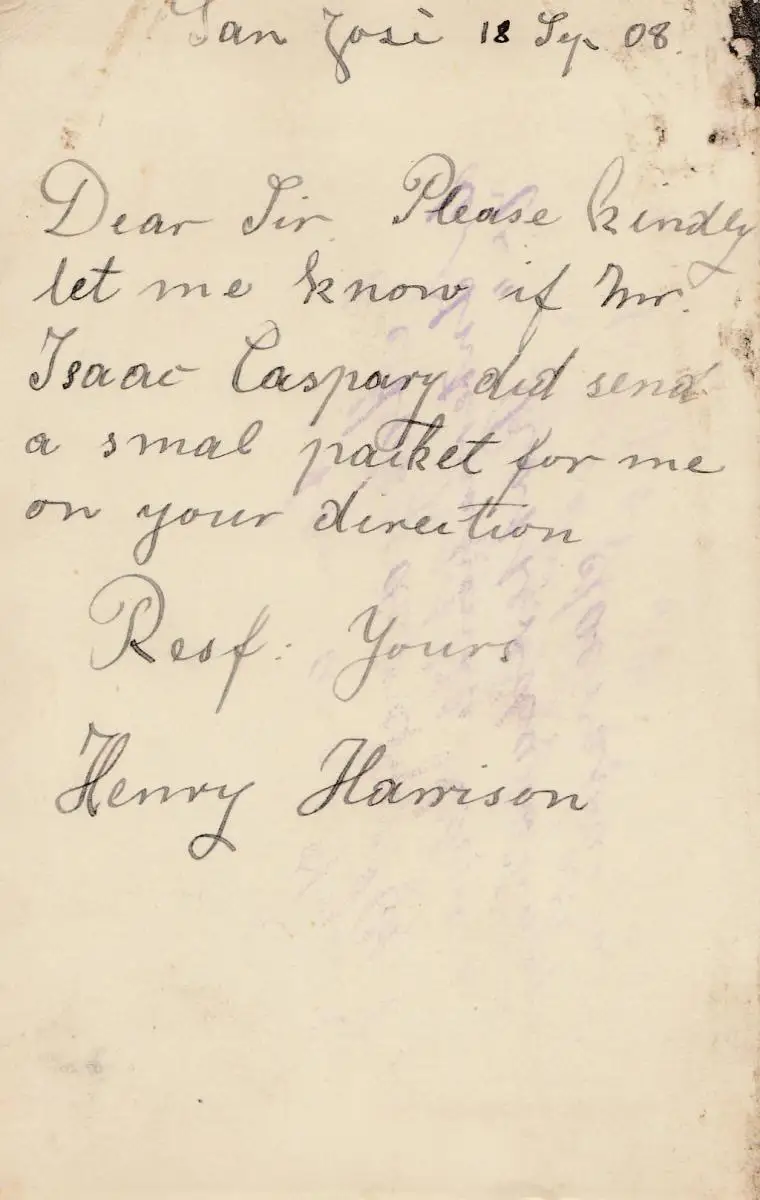 San José 18 Sep. 08.
Dear Sir. Please kindly
let me know if Mr.
Isaac Caspary did send
a smal packet for me
on your direction
Resp: Yours
Henry Harrison